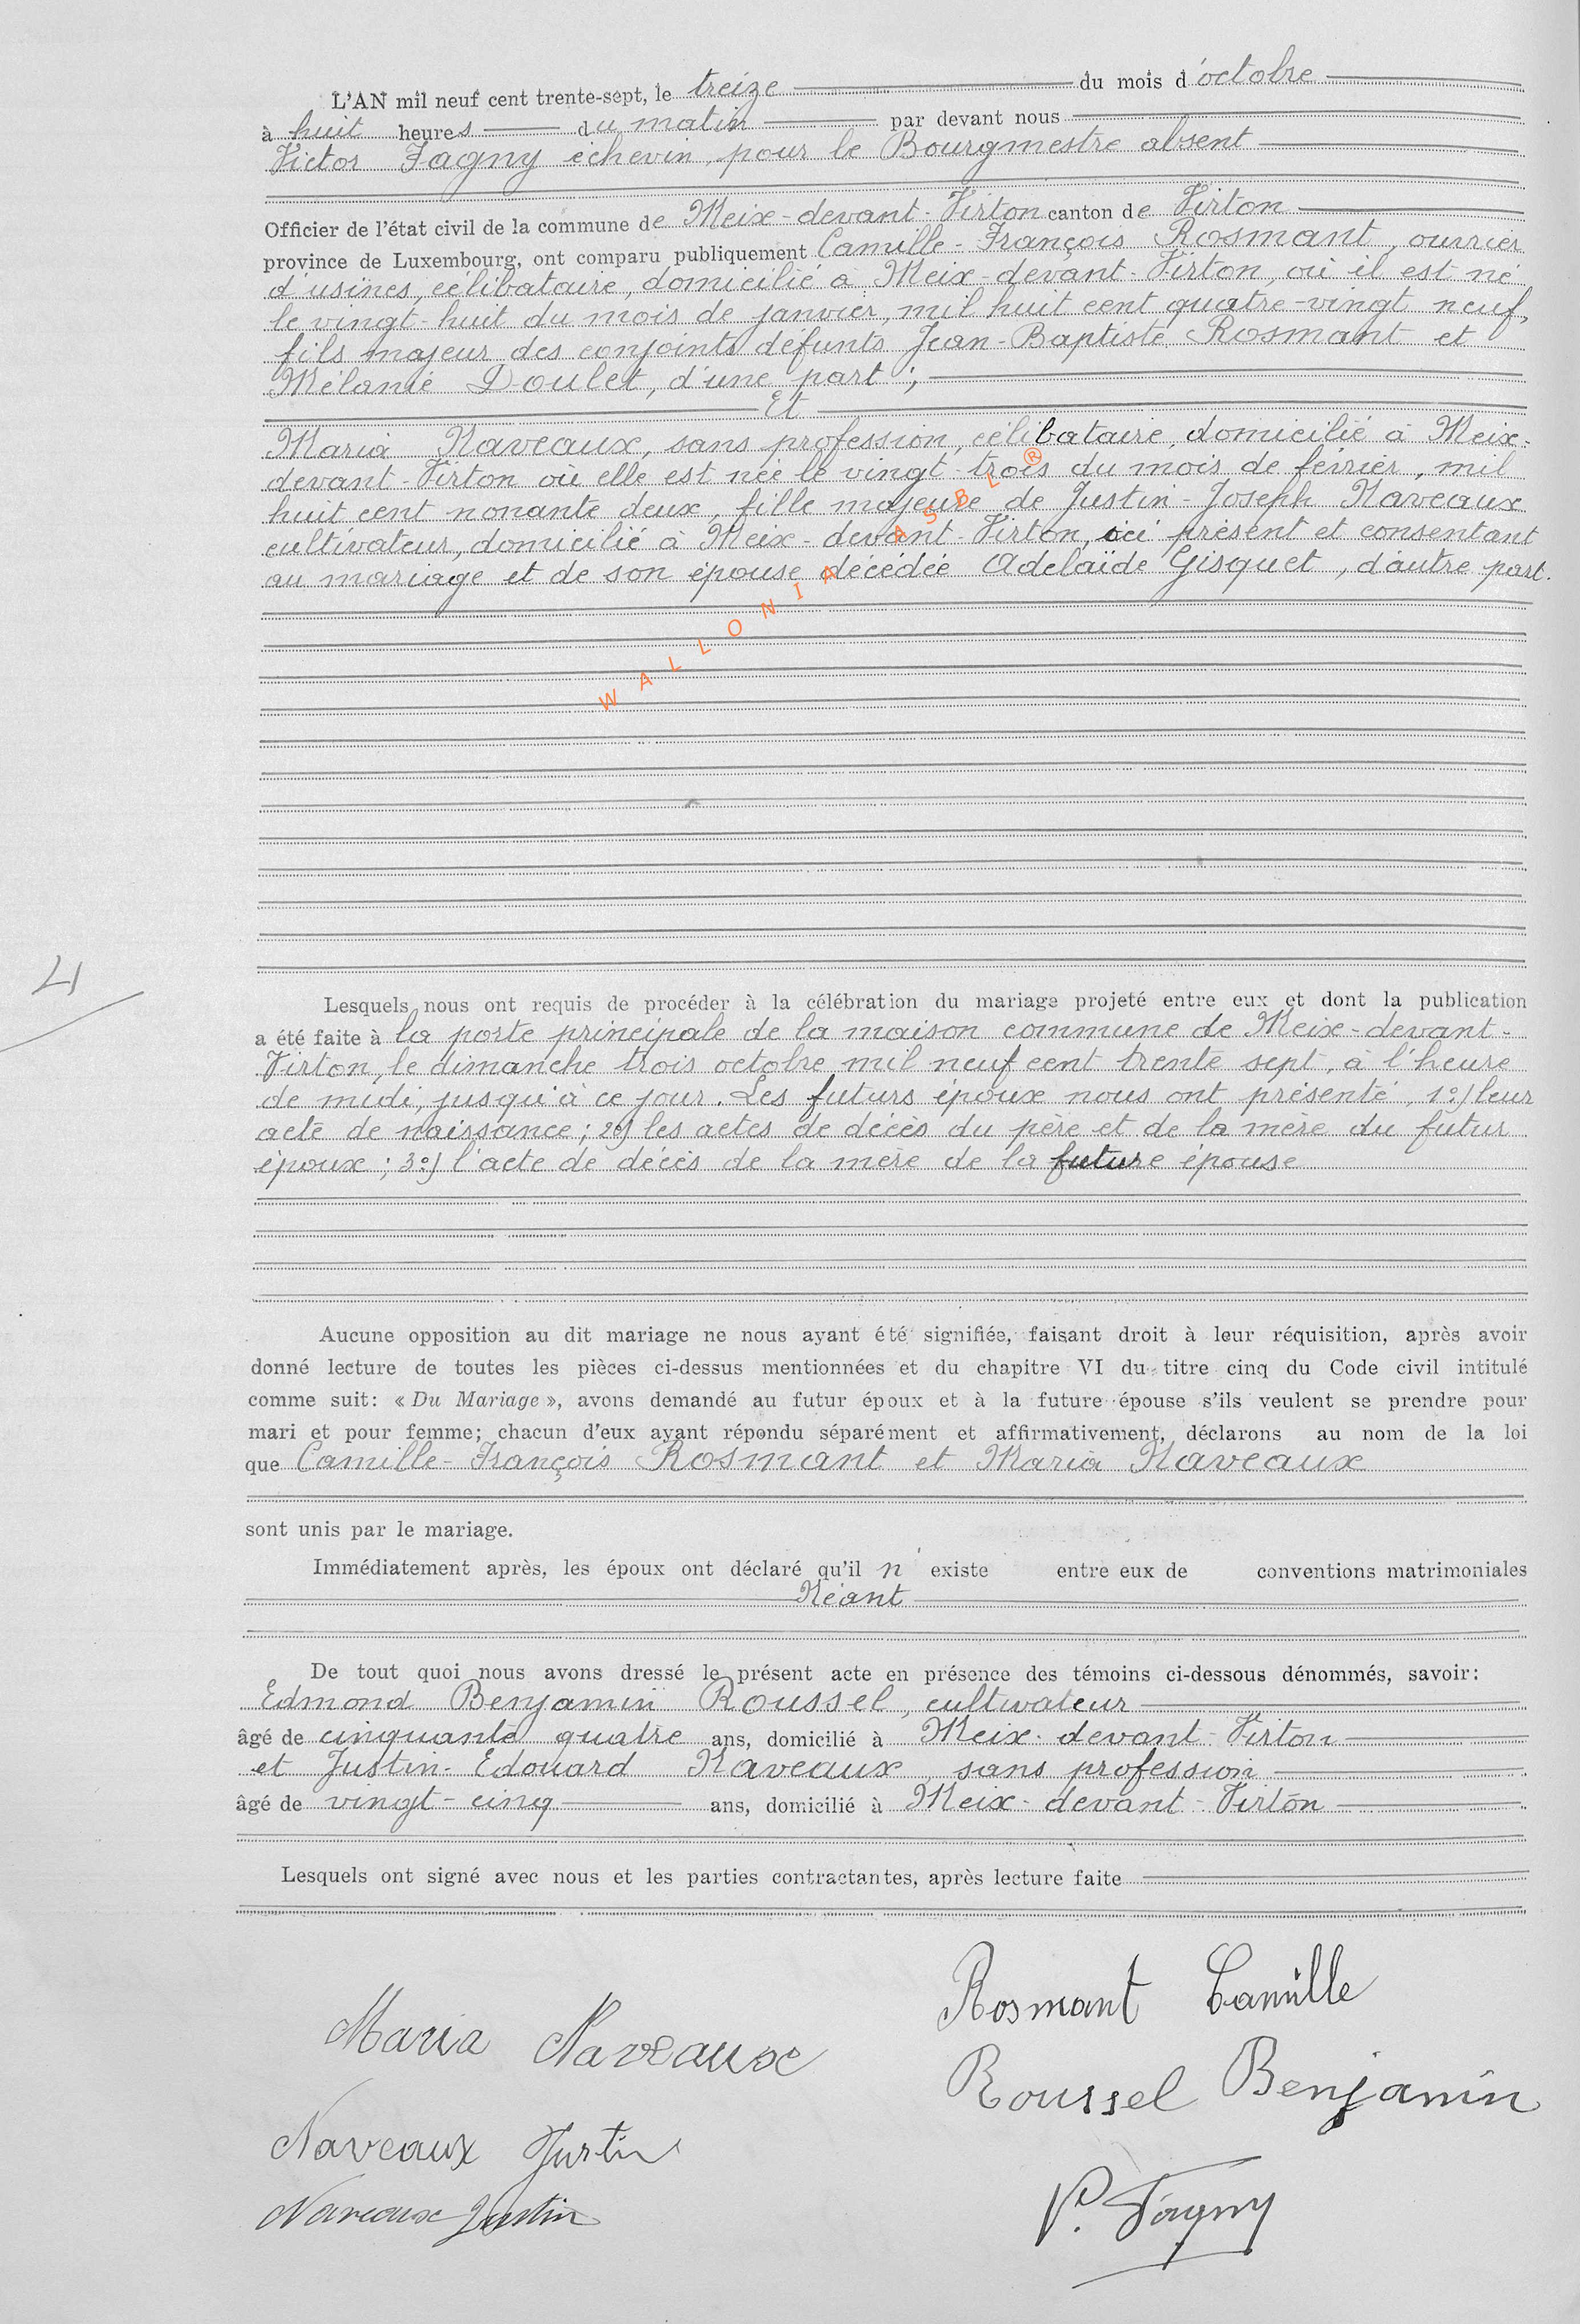 L'AN mil neuf cent trente-sept, le treize du mois d'octobre
à huit heures du matin par devant nous
Victor Fagny échevin, pour le Bourgmestre absent
Officier de l'état civil de la commune de Meix-devant-Virton canton de Virton
province de Luxembourg, ont comparu publiquement Camille-François Rosmant, ouvrier
d'usines, célibataire, domicilié à Meix-devant-Virton, où il est né
le vingt-huit du mois de janvier, mil huit cent quatre-vingt neuf,
fils majeur des conjoints défunts Jean-Baptiste Rosmant et
Mélanie Doulet, d'une part ;
Et
Maria Naveaux, sans profession, célibataire, domicilié à Meix-
devant-Virton où elle est née le vingt-trois du mois de février, mil
huit cent nonante deux, fille majeure de Justin-Joseph Naveaux
cultivateur, domicilié à Meix-devant-Virton, ici présent et consentant
au mariage et de son épouse décédée Adelaïde Gisquet, d'autre part.
WALLONIA ASBL ®
4
Lesquels nous ont requis de procéder à la célébration du mariage projeté entre eux et dont la publication
a été faite à la porte principale de la maison commune de Meix-devant-
Virton, le dimanche trois octobre mil neuf cent trente sept, à l'heure
de midi, jusqu'à ce jour. Les futurs époux nous ont présenté, 1º) leur
acte de naissance ; 2º) les actes de décès du père et de la mère du futur
époux ; 3º) l'acte de décès de la mère de la future épouse
Aucune opposition au dit mariage ne nous ayant été signifiée, faisant droit à leur réquisition, après avoir
donné lecture de toutes les pièces ci-dessus mentionnées et du chapitre VI du titre cinq du Code civil intitulé
comme suit: « Du Mariage », avons demandé au futur époux et à la future épouse s'ils veulent se prendre pour
mari et pour femme; chacun d'eux ayant répondu séparément et affirmativement, déclarons au nom de la loi
que Camille-François Rosmant et Maria Naveaux
sont unis par le mariage.
Immédiatement après, les époux ont déclaré qu'il n'existe entre eux de conventions matrimoniales
Néant
De tout quoi nous avons dressé le présent acte en présence des témoins ci-dessous dénommés, savoir:
Edmond Benjamin Roussel, cultivateur
âgé de cinquante quatre ans, domicilié à Meix-devant-Virton
et Justin-Edouard Naveaux sans profession
âgé de vingt-cinq ans, domicilié à Meix-devant-Virton
Lesquels ont signé avec nous et les parties contractantes, après lecture faite
Rosmant Camille
Maria Naveaux
Roussel Benjamin
Naveaux Justin
Naveaux Justin
V. Fagny